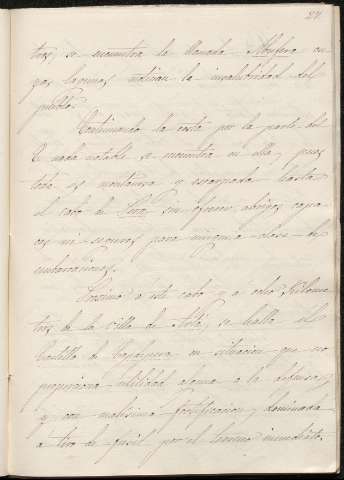 tros, se encuentra la llamada Albufera cu
yas lagunas motivan la insalubridad del
pueblo.
Continuando la costa por la parte del
E. nada notable se encuentra en ella, pues
toda es montuosa y escarpada hasta
el cabo de Pera, sin ofrecer abrigos capa
ces ni seguros para ninguna clase de
embarcaciones.
Próximo á este cabo y á ocho Kilome
tros de la villa de Artá, se halla el
Castillo de Capdepera en situacion que no
proporciona utilidad alguna á la defensa,
y con malisima fortificacion, dominada
a tiro de fusil por el terreno inmediato.